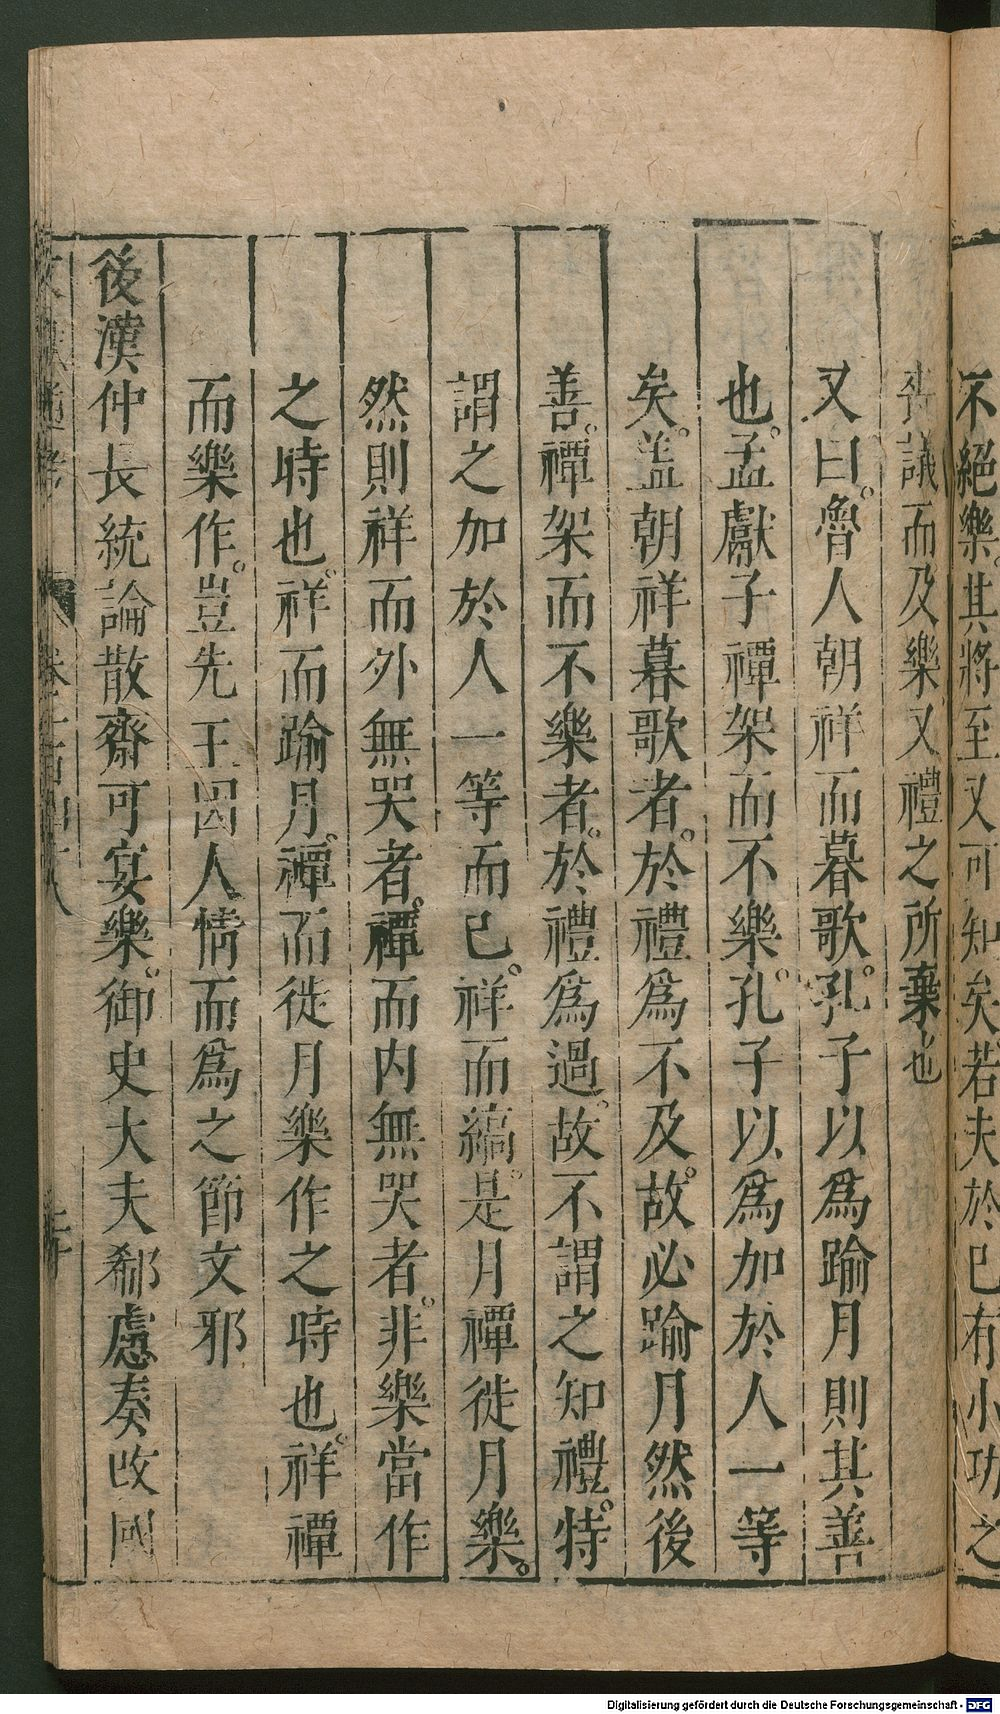 不絕樂其將至又可知矣若夫於已有小功之
喪議而及樂又禮之所棄也
又曰魯人朝祥而暮歌孔子以爲踰月則其善
也孟獻子禫架而不樂孔子以爲加於人一等
矣蓋朝祥暮歌者於禮爲不及故必踰月然後
善禫架而不樂者於禮爲過故不謂之知禮特
謂之加於人一等而已祥而縞是月禫徙月樂
然則祥而外無哭者禫而内無哭者非樂當作
之時也祥而踰月禫而徙月樂作之時也祥禫
而樂作豈先王因人情而爲之節文邪
後漢仲長統論散齋可宴樂御史大夫郗慮奏改國
Digitalisierung gefördert durch die Deutsche Forschungsgemeinschaft - DFG